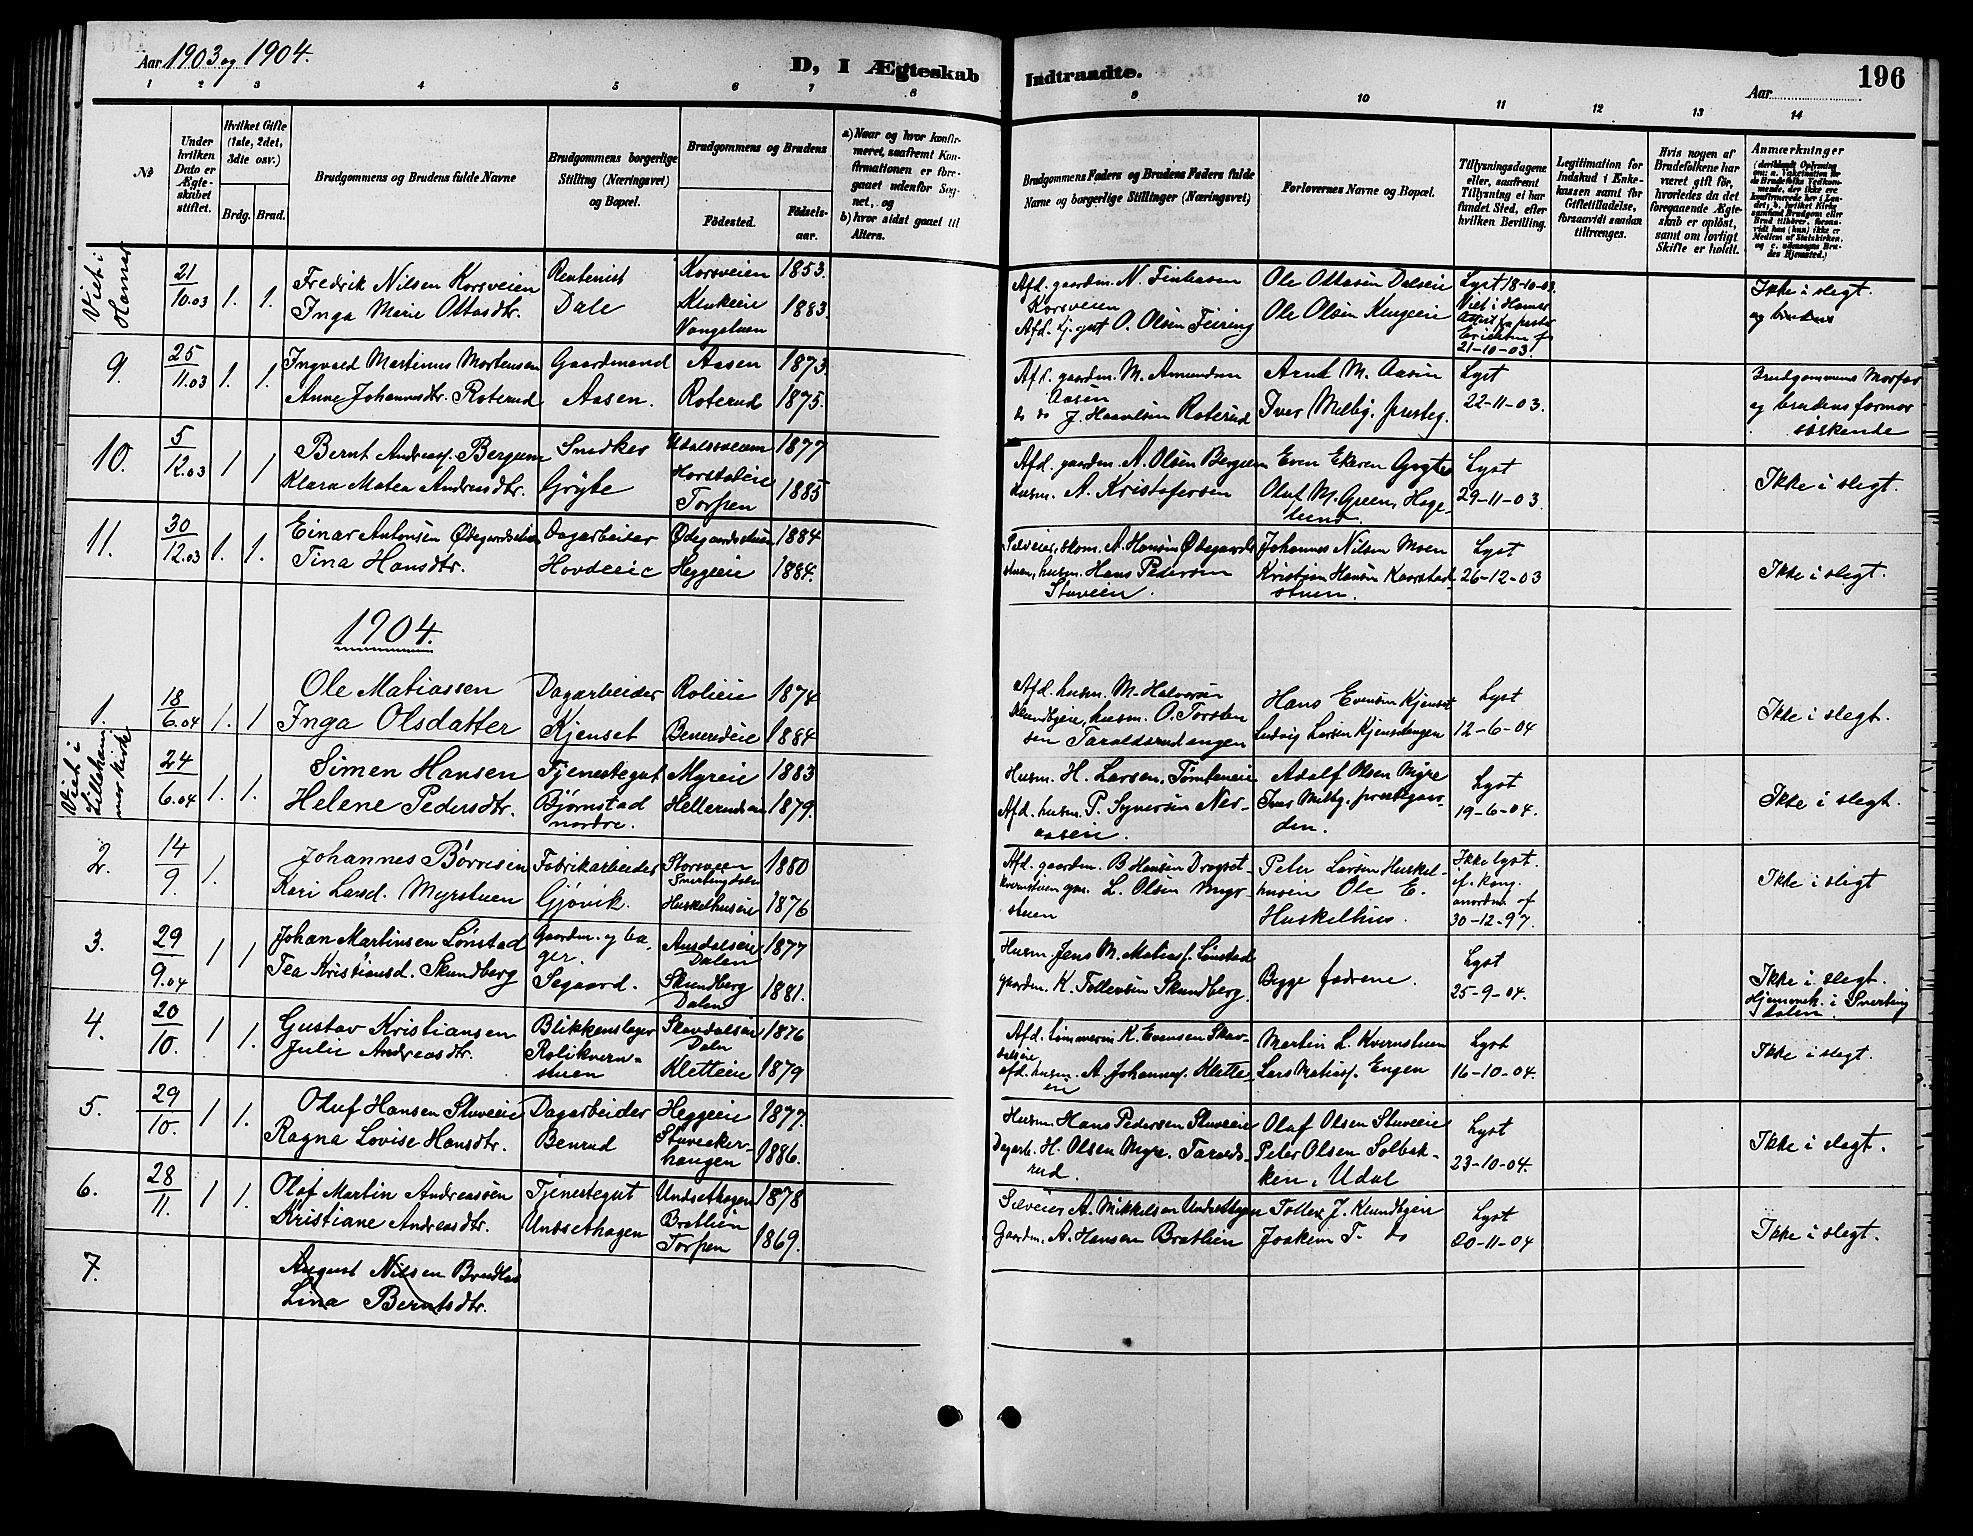 Aar 1903 og 1904.
D, I Ægteskab Indtraadte.
Aar 196
1 2 3 4 5 6 7 8 9 10 11 12 13 14
No
Under hvilken Dato er Ægteskabet stiftet.
Hvilket Gifte (1ste, 2det, 3dte osv.)
Brdg. Brud.
Brudgommens og Brudens fulde Navne
Brudgommens borgerlige Stilling (Næringsvei) og Bopæl.
Brudgommens og Brudens
Fødested. Fødselsaar.
a) Naar og hvor konfirmeret, saafremt Konfirmationen er foregaaet udenfor Sognet, og
b) hvor sidst gaaet til Alters.
Brudgommens Faders og Brudens Faders fulde Navne og borgerlige Stillinger (Næringsvei)
Forlovernes Navne og Bopæl.
Tillysningsdagene eller, saafremt Tillysning ei har fundet Sted, efter hvilken Bevilling.
Legitimation for Indskud i Enkekassen samt for Giftetilladelse, forsaavidt saadan tiltrænges.
Hvis nogen af Brudefolkene har været gift før, hvorledes da det foregaaende Ægteskab er opløst, samt om lovligt Skifte er holdt.
Anmærkninger
Viet i Hamar
21/10.03 1. 1. Fredrik Nilsen Korsveien Rentenist Korsveien 1853.
Inga Marie Ottosdtr. Dale Klukeie Vangstuen 1883.
Afd. gaardm. N. Korsveien
Afd. O. Olsen Feiring
Ole Ottosen Dalseie
Ole Olsen
Lyst 18-10-03. Viet i Hamar 21-10-03.
Ikke i slegt.
9. 25/11.03 1. 1. Ingvald Martinus Mortensen Gaardmand Aasen 1873.
Anne Johannesdtr. Roterud Aasen. Roterud 1875.
Afd. gaardm. M. Amundsen Aasen
do do J. Roterud
Arnt M. Aasen
Iver Melby, presteg.
Lyst 22-11-03.
Brudgommens Morfar og brudens farmor søskende
10. 5/12.03 1 1 Bernt Andreasf. Bergum Snedker 1877
Klara Matea Andreasdtr. Gryte Torpen 1885
Afd. gaardm. A. Olsen Bergum
Husm. A. Kristofersen
Even Ekeren Grytes
Oluf M. Green, Hagelund.
Lyst 29-11-03.
Ikke i slegt.
11. 30/12.03 1. 1. Einar Antonsen Ødegaardsstuen Dagarbeider Ødegaardsstuen 1884
Tina Hansdtr. Hovdeeie Heggeeie 1884.
Selveier, skom. A. Hansen Ødegaardsstuen, husm. Hans Pedersen Stuveien.
Johannes Nilsen Moen
Kristian Hansen Kaarstadstuen.
Lyst 26-12-03
Ikke i slegt.
1904.
1. 18/6.04 1. 1 Ole Matiassen Dagarbeider Rolieie 1874
Inga Olsdatter Kjenset Benerudeie 1884
Afd. husm. M. Halvorsen
husm. O. Torstensen Taraldsrudengen
Hans Evensen Kjenset
Ludvig Larsen Kjensetengen
Lyst 12-6-04
Ikke i slegt.
Viet i Lillehammer kirke.
24/6.04 1. 1. Simen Hansen Tjenestegut Myreie 1883
Helene Pedersdtr. Bjørnstad nordre. 1879.
Husm. H. Larsen, Tømteneie
Afd. husm. P. Syversen Neraasen.
Adolf Olsen Myre
Iver Melby, prestegaarden.
Lyst 19-6-04.
Ikke i slegt.
2. 14/9. 1. Johannes Børresen Fabrikarbeider Storsveen Snertingdalen 1880
Kari Larsd. Myrstuen Gjøvik. Huskelhuseie 1876
Afd. gaardm. B Hansen Dragsetkvernstuen
L. Olsen Myrstuen
Peter Larsen Huskelhusein
Ole E. Huskelhus.
Ikke lyst. cf. kong. anordn. af 30-12-97.
Ikke i slegt
3. 29/9.04 1 1 Johan Martinsen Lønstad Gaardm. og bager. Ausdalseie Dalen 1877
Tea Kristiansd. Skundberg Segaard. Skundberg Dalen 1881.
Husm. Jens M. Matiasf. Lønstad
gaardm. K. Tollevsen Skundberg.
Begge fædrene.
Lyst 25-9-04.
Ikke i slegt. Hjemmeh. i Snertingdalen.
4. 20/10. 1 1. Gustav Kristiansen Blikkenslager Skavdalseie Dalen 1876
Julie Andreasdtr. Rolikvernstuen Kletteeie 1879
Afd. tømmerm. K. Evensen Skavdalseie,
afd. husm. A. Johannesf. Kletteeie
Martin L. Kvernstuen
Lars Matiasf. Engen
Lyst 16-10-04.
Ikke i slegt.
5. 29/10. 1 1. Oluf Hansen Stuveeie Dagarbeider Heggeeie 1877.
Ragna Lovise Hansdtr. Benrud Stuveekerhaugen 1886.
Husm. Hans Pedersen Stuveeie
Dagarb. H. Olsen Myre, Taraldsrud.
Olaf Olsen Stuveeie
Peter Olsen Solbakken, Udal
Lyst 23-10-04.
Ikke i slegt.
6. 28/11. 1 1. Olaf Martin Andreassen Tjenestegut Undsethagen 1878
Kristiane Andreasdtr. Undsethagen Bratlien Torpen 1869.
Selveier A. Mikkelsen Undsethagen
Gaardm. A. Hansen Bratlien
Tollev J. Klundbyeie
Joakim T. do
Lyst 20-11-04
Ikke i slegt.
7. August Nilsen
Lina Berntsdtr.